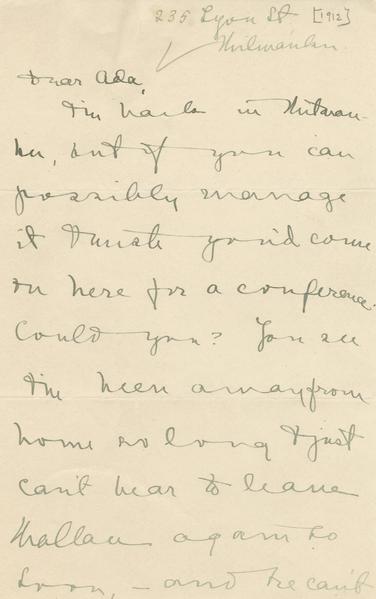 235 Lyon St [1912]
Milwaukee.
Dear Ada,
I'm back in Milwau-
kee, but if you can
possibly manage
it I wish you'd come
on here for a conference.
Could you? You see
I'm been away from
home so long I just
can't bear to leave
Wallace again so
soon, - and he can't